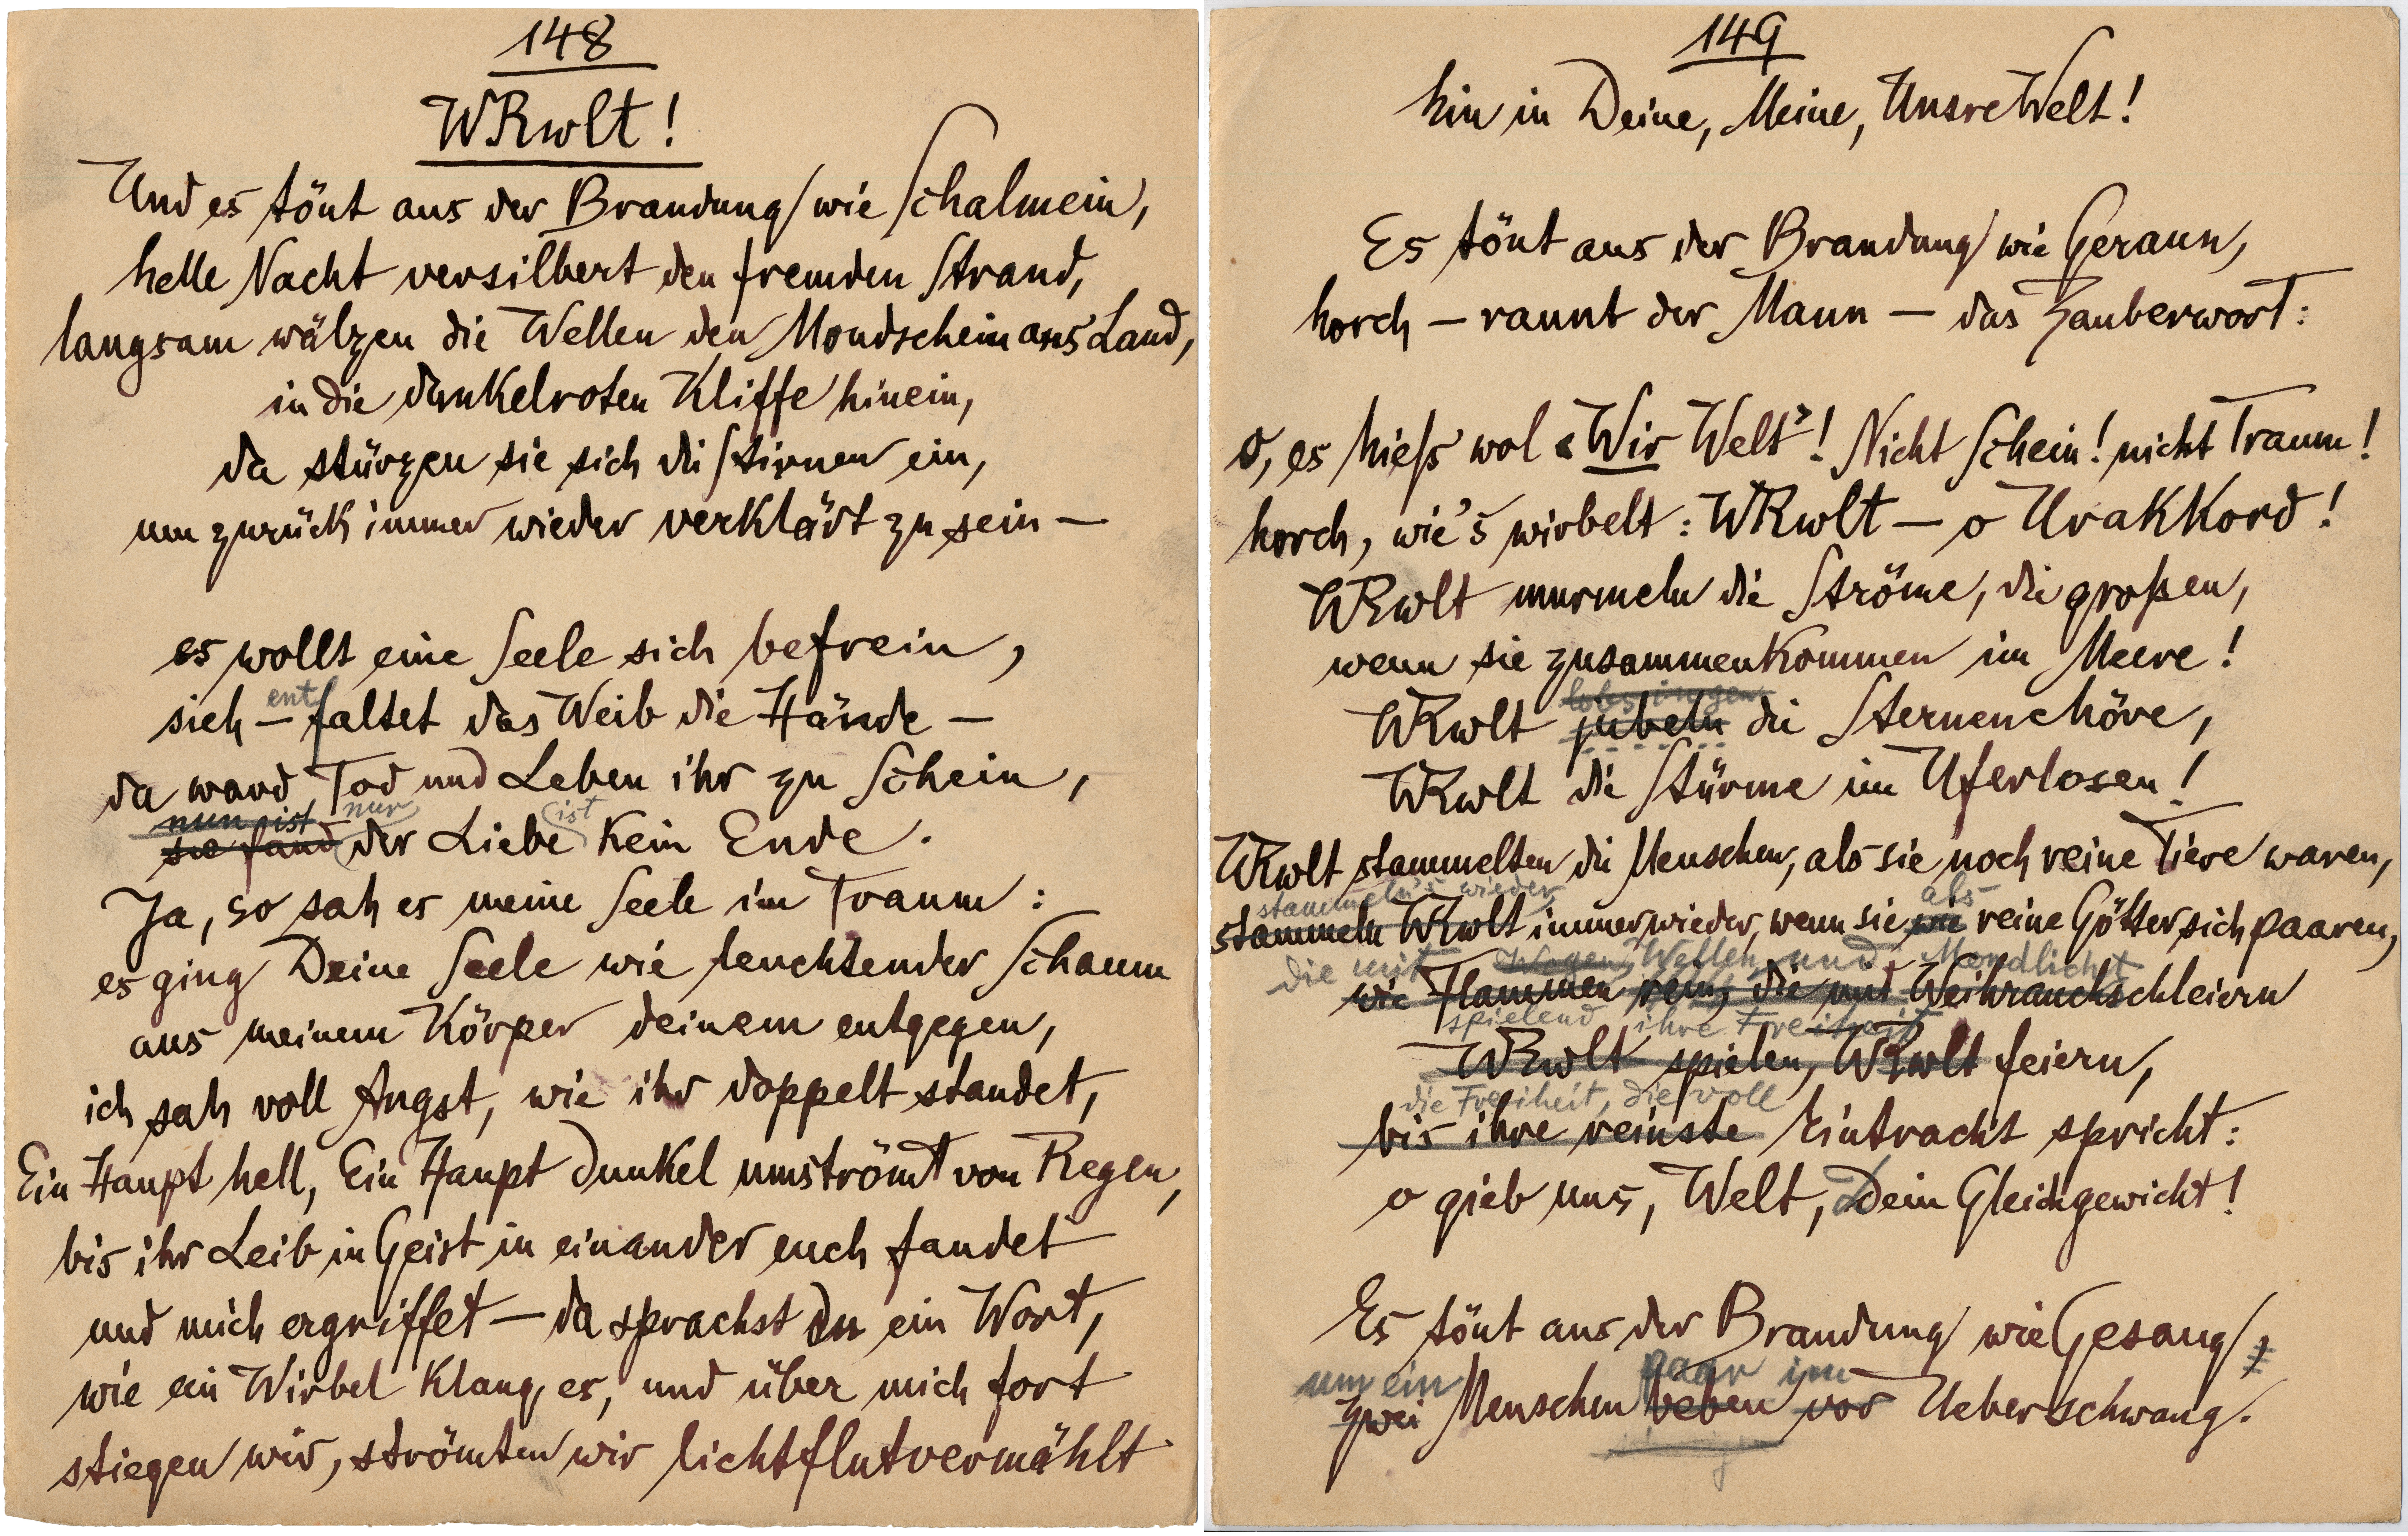 148
WRwlt!
Und es tönt aus der Brandung wie Schalmein,
helle Nacht versilbert den fremden Strand,
langsam wälzen die Wellen den Mondschein ans Land,
in die dunkelroten Kliffe hinein,
da stürzen sie sich die Stirnen ein,
um zurück immer wieder verklärt zu sein —
es wollt eine Seele sich befrein,
ent
sieh — faltet das Weib die Hände —
da ward Tod und Leben ihr zu Schein,
nun ist nur ist
sie fand der Liebe kein Ende.
Ja, so sah es meine Seele im Traum:
es ging Deine Seele wie leuchtender Schaum
aus meinem Körper deinem entgegen,
ich sah voll Angst, wie ihr doppelt standet,
Ein Haupt hell, Ein Haupt dunkel umströmt von Regen,
bis ihr Leib in Geist in einander euch fandet
und mich ergriffet — da sprachst du ein Wort,
wie ein Wirbel klang es, und über mich fort
stiegen wir, strömten wir lichtflutvermählt
149
hin in Deine, Meine, Unsre Welt!
Es tönt aus der Brandung wie Geraun,
horch — raunt der Mann — das Zauberwort:
o, es hieß wol „Wir Welt"! Nicht Schein! nicht Traum!
horch, wie's wirbelt: WRwlt — o Urakkord!
WRwlt murmeln die Ströme, die großen,
wenn sie zusammenkommen im Meere!
lobsingen
WRwlt jubeln die Sternenchöre,
WRwlt die Stürme im Uferlosen!
WRwlt stammelten die Menschen, als sie noch reine Tiere waren,
stammeln's wieder als
stammeln WRwlt immer wieder, wenn sie wie reine Götter sich paaren,
die mit Wogen, Wellen und Mondlicht
wie Flammen rein, die mit Weihrauchschleiern
spielend ihre Freiheit
WRwlt spielen, WRwlt feiern,
die Freiheit, die voll
bis ihre reinste Eintracht spricht:
o gieb uns, Welt, Dein Gleichgewicht!
Es tönt aus der Brandung wie Gesang
um ein paar im
zwei Menschen beben vor Ueberschwang.